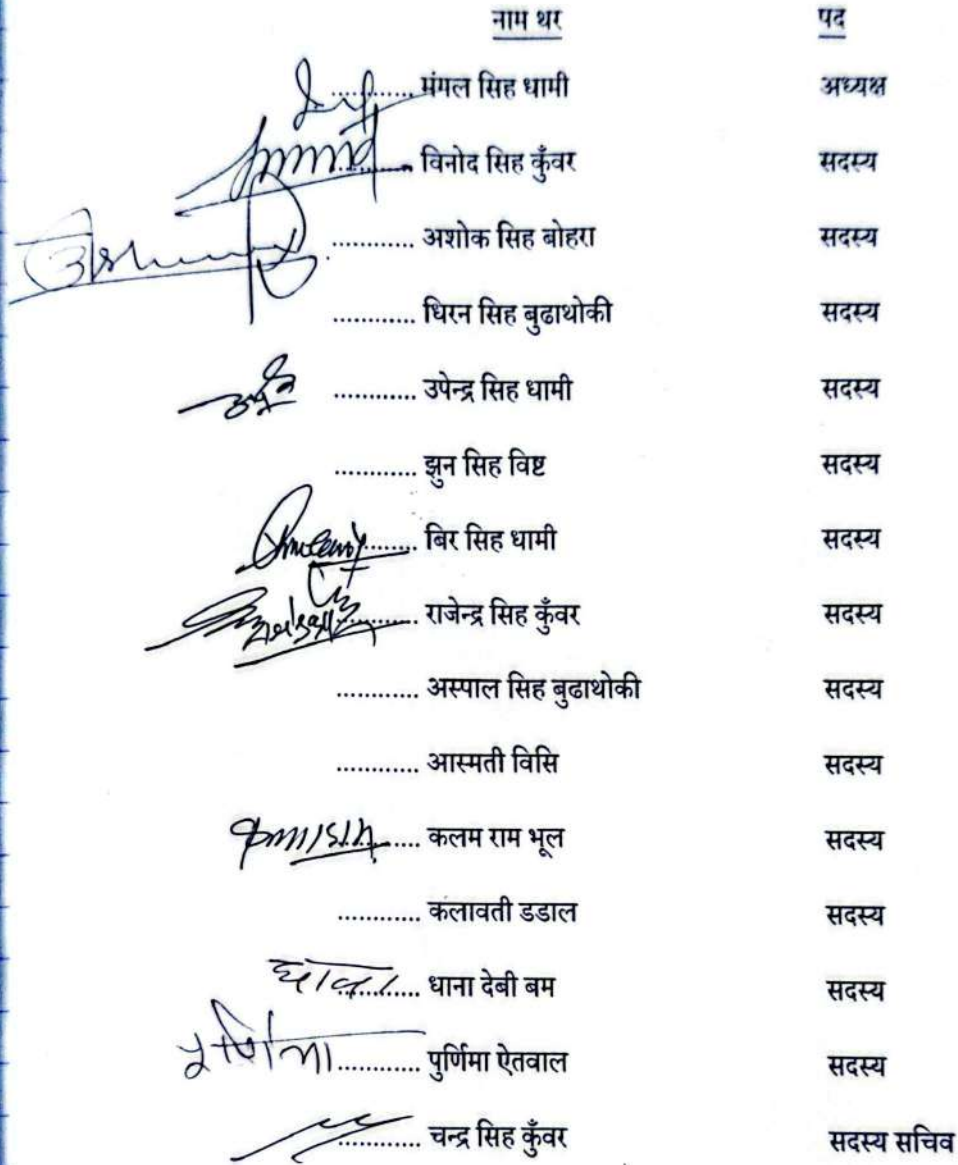 नाम थर पद
............ मंगल सिह धामी अध्यक्ष
............ विनोद सिह कुँवर सदस्य
............ अशोक सिह बोहरा सदस्य
............ धिरन सिह बुढाथोकी सदस्य
............ उपेन्द्र सिह धामी सदस्य
............ झुन सिह विष्ट सदस्य
............ बिर सिह धामी सदस्य
............ राजेन्द्र सिह कुँवर सदस्य
............ अस्पाल सिह बुढाथोकी सदस्य
............ आस्मती विसि सदस्य
............ कलम राम भूल सदस्य
............ कलावती डडाल सदस्य
............ धाना देबी बम सदस्य
पुर्णिमा ............ पुर्णिमा ऐतवाल सदस्य
............ चन्द्र सिह कुँवर सदस्य सचिव